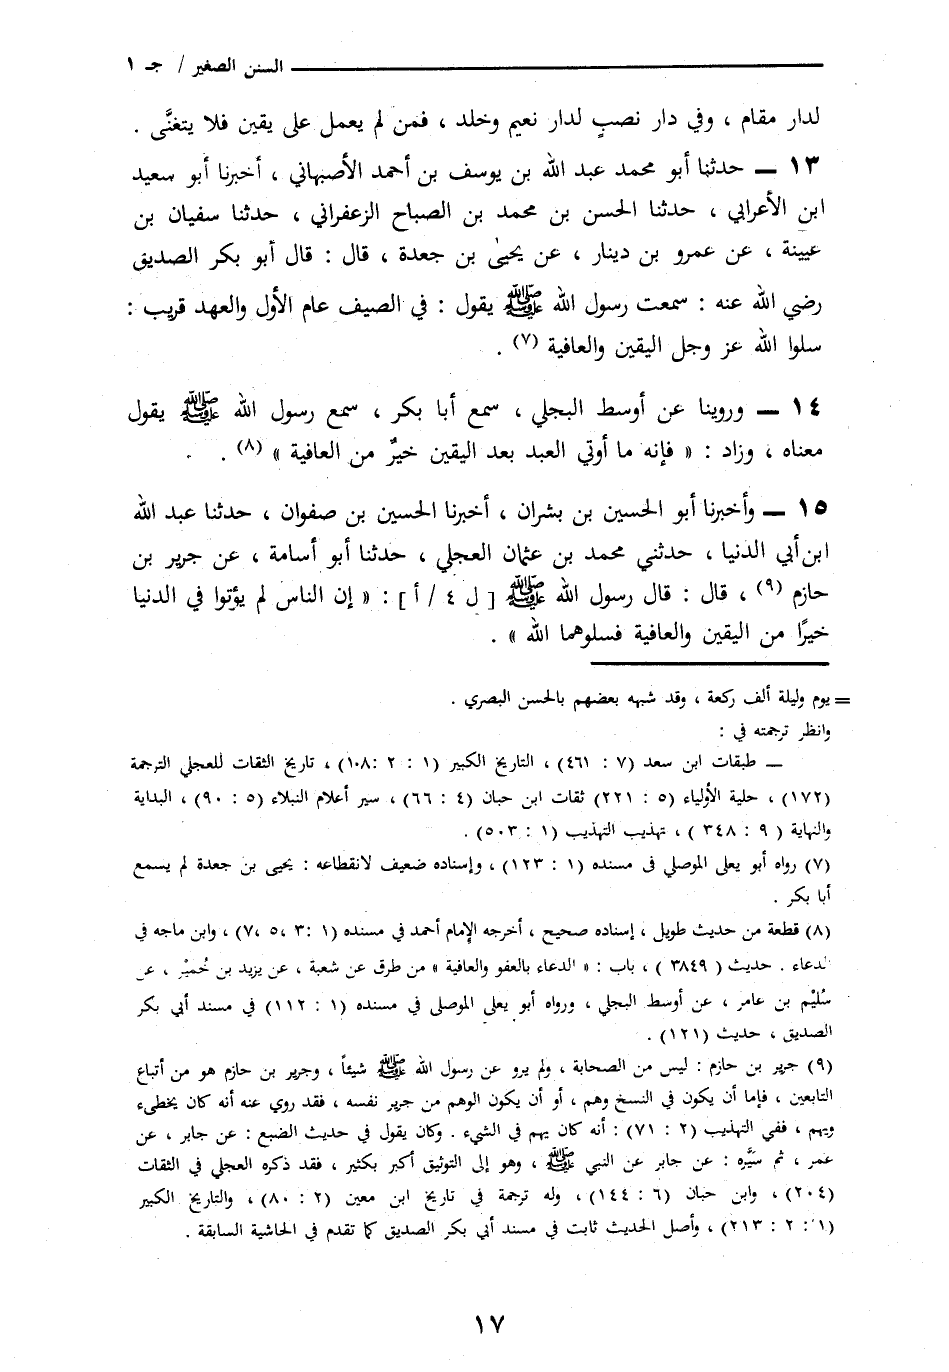 السنن الصغير / جـ ١
لدار مقام ، وفي دار نصبٍ لدار نعيم وخلد ، فمن لم يعمل على يقين فلا يتعنَّى .
١٣ ــ حدثنا أبو محمد عبد الله بن يوسف بن أحمد الأصبهاني ، أخبرنا أبو سعيد
ابن الأعرابي ، حدثنا الحسن بن محمد بن الصباح الزعفراني ، حدثنا سفيان بن
عيينة ، عن عمرو بن دينار ، عن يحيىٰ بن جعدة ، قال : قال أبو بكر الصديق
رضي الله عنه : سمعت رسول الله ﷺ يقول : في الصيف عام الأول والعهد قريب :
سلوا الله عز وجل اليقين والعافية (٧) .
١٤ ــ وروينا عن أوسط البجلي ، سمع أبا بكر ، سمع رسول الله ﷺ يقول
معناه ، وزاد : « فإنه ما أوتي العبد بعد اليقين خيرٌ من العافية » (٨) .
١٥ ــ وأخبرنا أبو الحسين بن بشران ، أخبرنا الحسين بن صفوان ، حدثنا عبد الله
ابن أبي الدنيا ، حدثني محمد بن عثمان العجلي ، حدثنا أبو أسامة ، عن جرير بن
حازم (٩) ، قال : قال رسول الله ﷺ [ ل ٤ / أ ] : « إن الناس لم يؤتوا في الدنيا
خيرًا من اليقين والعافية فسلوهما الله » .
= يوم وليلة ألف ركعة ، وقد شبهه بعضهم بالحسن البصري .
وانظر ترجمته في :
ــ طبقات ابن سعد (٧ : ٤٦١) ، التاريخ الكبير (١ : ٢ :١٠٨) ، تاريخ الثقات للعجلي الترجمة
(١٧٢) ، حلية الأولياء (٥ : ٢٢١) ثقات ابن حبان (٤ : ٦٦) ، سير أعلام النبلاء (٥ : ٩٠) ، البداية
والنهاية ( ٩ : ٣٤٨ ) ، تهذيب التهذيب (١ : ٥٠٣) .
(٧) رواه أبو يعلى الموصلي فى مسنده (١ : ١٢٣) ، وإسناده ضعيف لانقطاعه : يحيى بن جعدة لم يسمع
أبا بكر .
(٨) قطعة من حديث طويل ، إسناده صحيح ، أخرجه الإمام أحمد في مسنده (١ :٣ ،٥ ،٧) ، وابن ماجه في
الدعاء . حديث ( ٣٨٤٩ ) ، باب : « الدعاء بالعفو والعافية » من طرق عن شعبة ، عن يزيد بن خُميْر ، عن
سُلَيْم بن عامر ، عن أوسط البجلي ، ورواه أبو يعلى الموصلى في مسنده (١ : ١١٢) في مسند أبي بكر
الصديق ، حديث (١٢١) .
(٩) جرير بن حازم : ليس من الصحابة ، ولم يرو عن رسول الله ﷺ شيئاً ، وجرير بن حازم هو من أتباع
التابعين ، فإما أن يكون في النسخ وهم ، أو أن يكون الوهم من جرير نفسه ، فقد روي عنه أنه كان يخطىء
ويهم ، ففي التهذيب (٢ : ٧١) : أنه كان يهم في الشيء . وكان يقول في حديث الضبع : عن جابر ، عن
عمر ، ثم سيَّره : عن جابر عن النبي ﷺ ، وهو إلى التوثيق أكبر بكثير ، فقد ذكره العجلي في الثقات
(٢٠٤) ، وابن حبان (٦ : ١٤٤) ، وله ترجمة في تاريخ ابن معين (٢ : ٨٠) ، والتاريخ الكبير
(١ : ٢ : ٢١٣) ، وأصل الحديث ثابت في مسند أبي بكر الصديق كما تقدم في الحاشية السابقة .
١٧